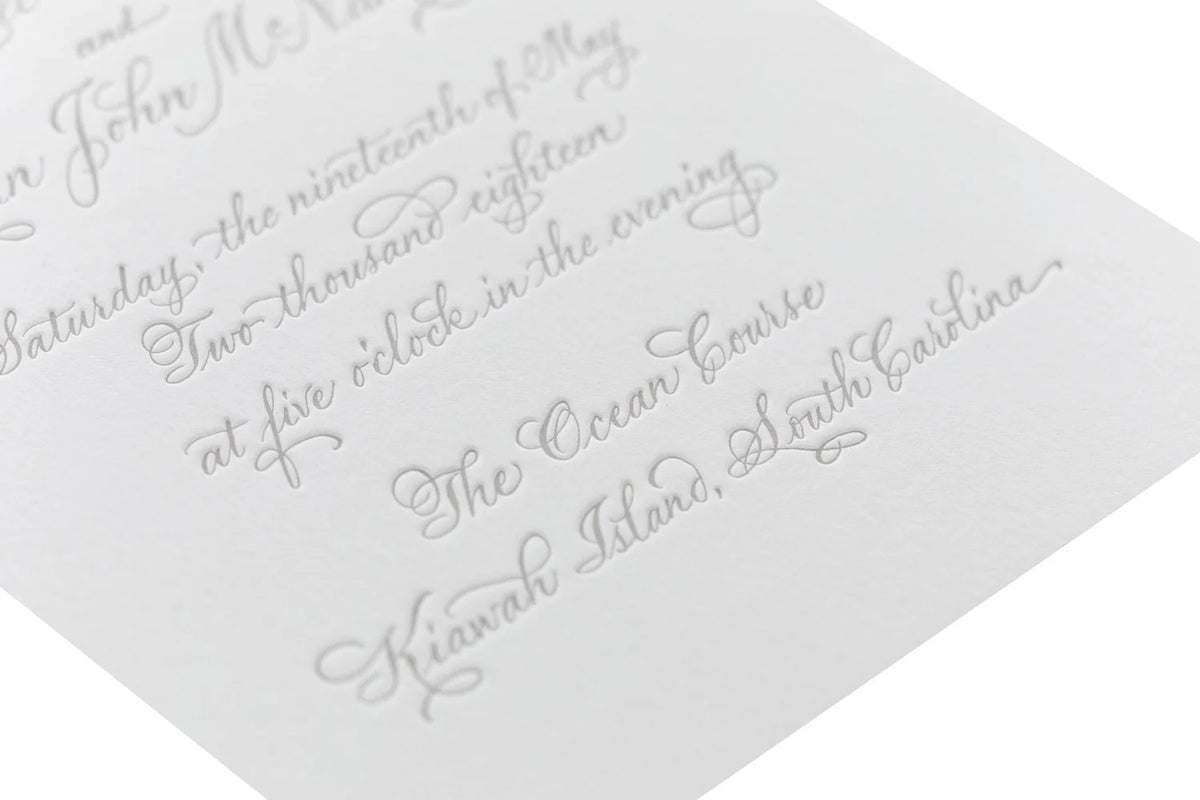 and
John
Saturday, the nineteenth of May
Two thousand eighteen
at five o'clock in the evening
The Ocean Course
Kiawah Island, South Carolina